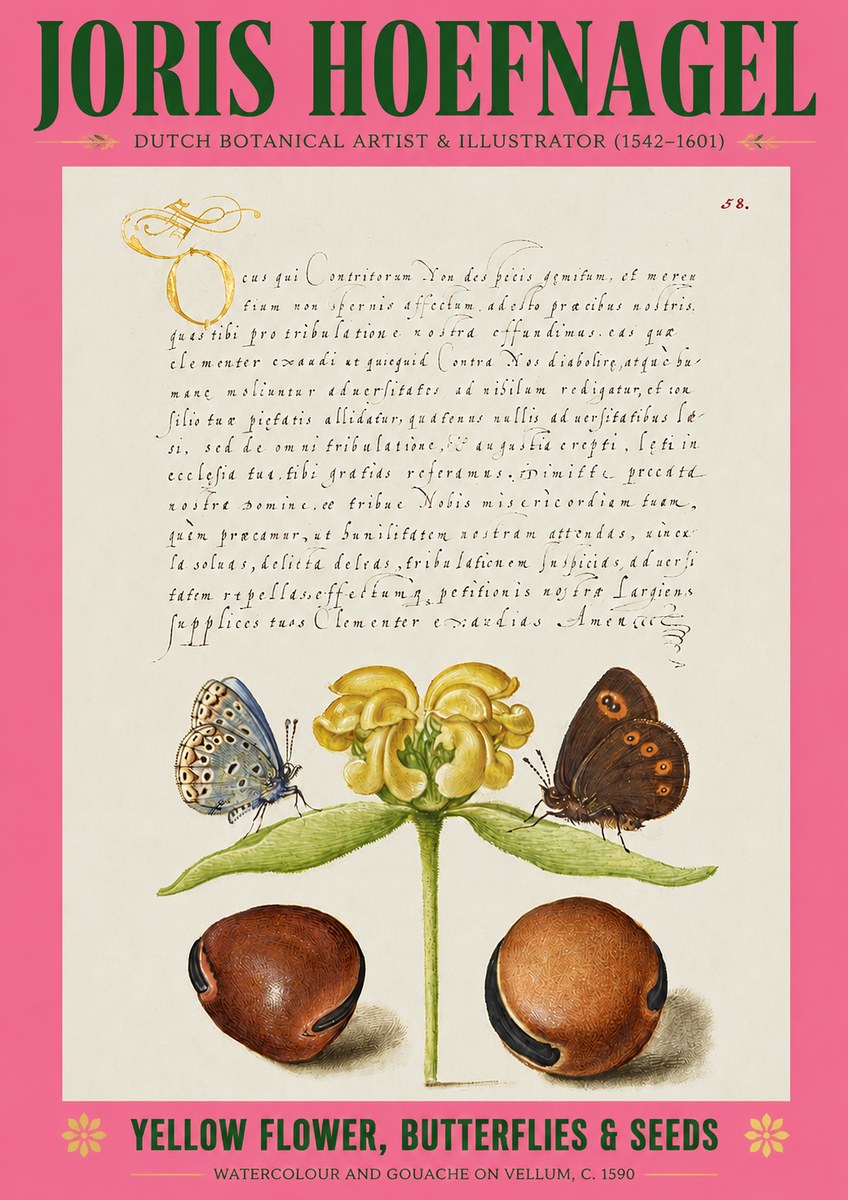 JORIS HOEFNAGEL
DUTCH BOTANICAL ARTIST & ILLUSTRATOR (1542–1601)
58.
Ocus qui Contritorum Non despicis gemitum, et meren
tium non spernis affectum, adesto præcibus nostris.
quas tibi pro tribulatione nostra effundimus. eas quæ
clementer exaudi ut quicquid Contra Nos diabolicę, atquè hu-
manę moliuntur aduersitates ad nihilum redigatur, et con
silio tuæ pietatis allidatur, quatenus nullis aduersitatibus læ-
si, sed de omni tribulatione, & augustia erepti, lęti in
ecclęsia tua, tibi gratias referamus. Dimitte peccata
nostra Domine, et tribue Nobis misericordiam tuam,
quèm præcamur, ut humilitatem nostram attendas, uincu
la soluas, delicta deleas, tribulationem Inspicias, aduersi
tatem repellas, effectumq, petitionis nostræ Largiens
supplices tuos Clementer exaudias Amen
YELLOW FLOWER, BUTTERFLIES & SEEDS
WATERCOLOUR AND GOUACHE ON VELLUM, C. 1590